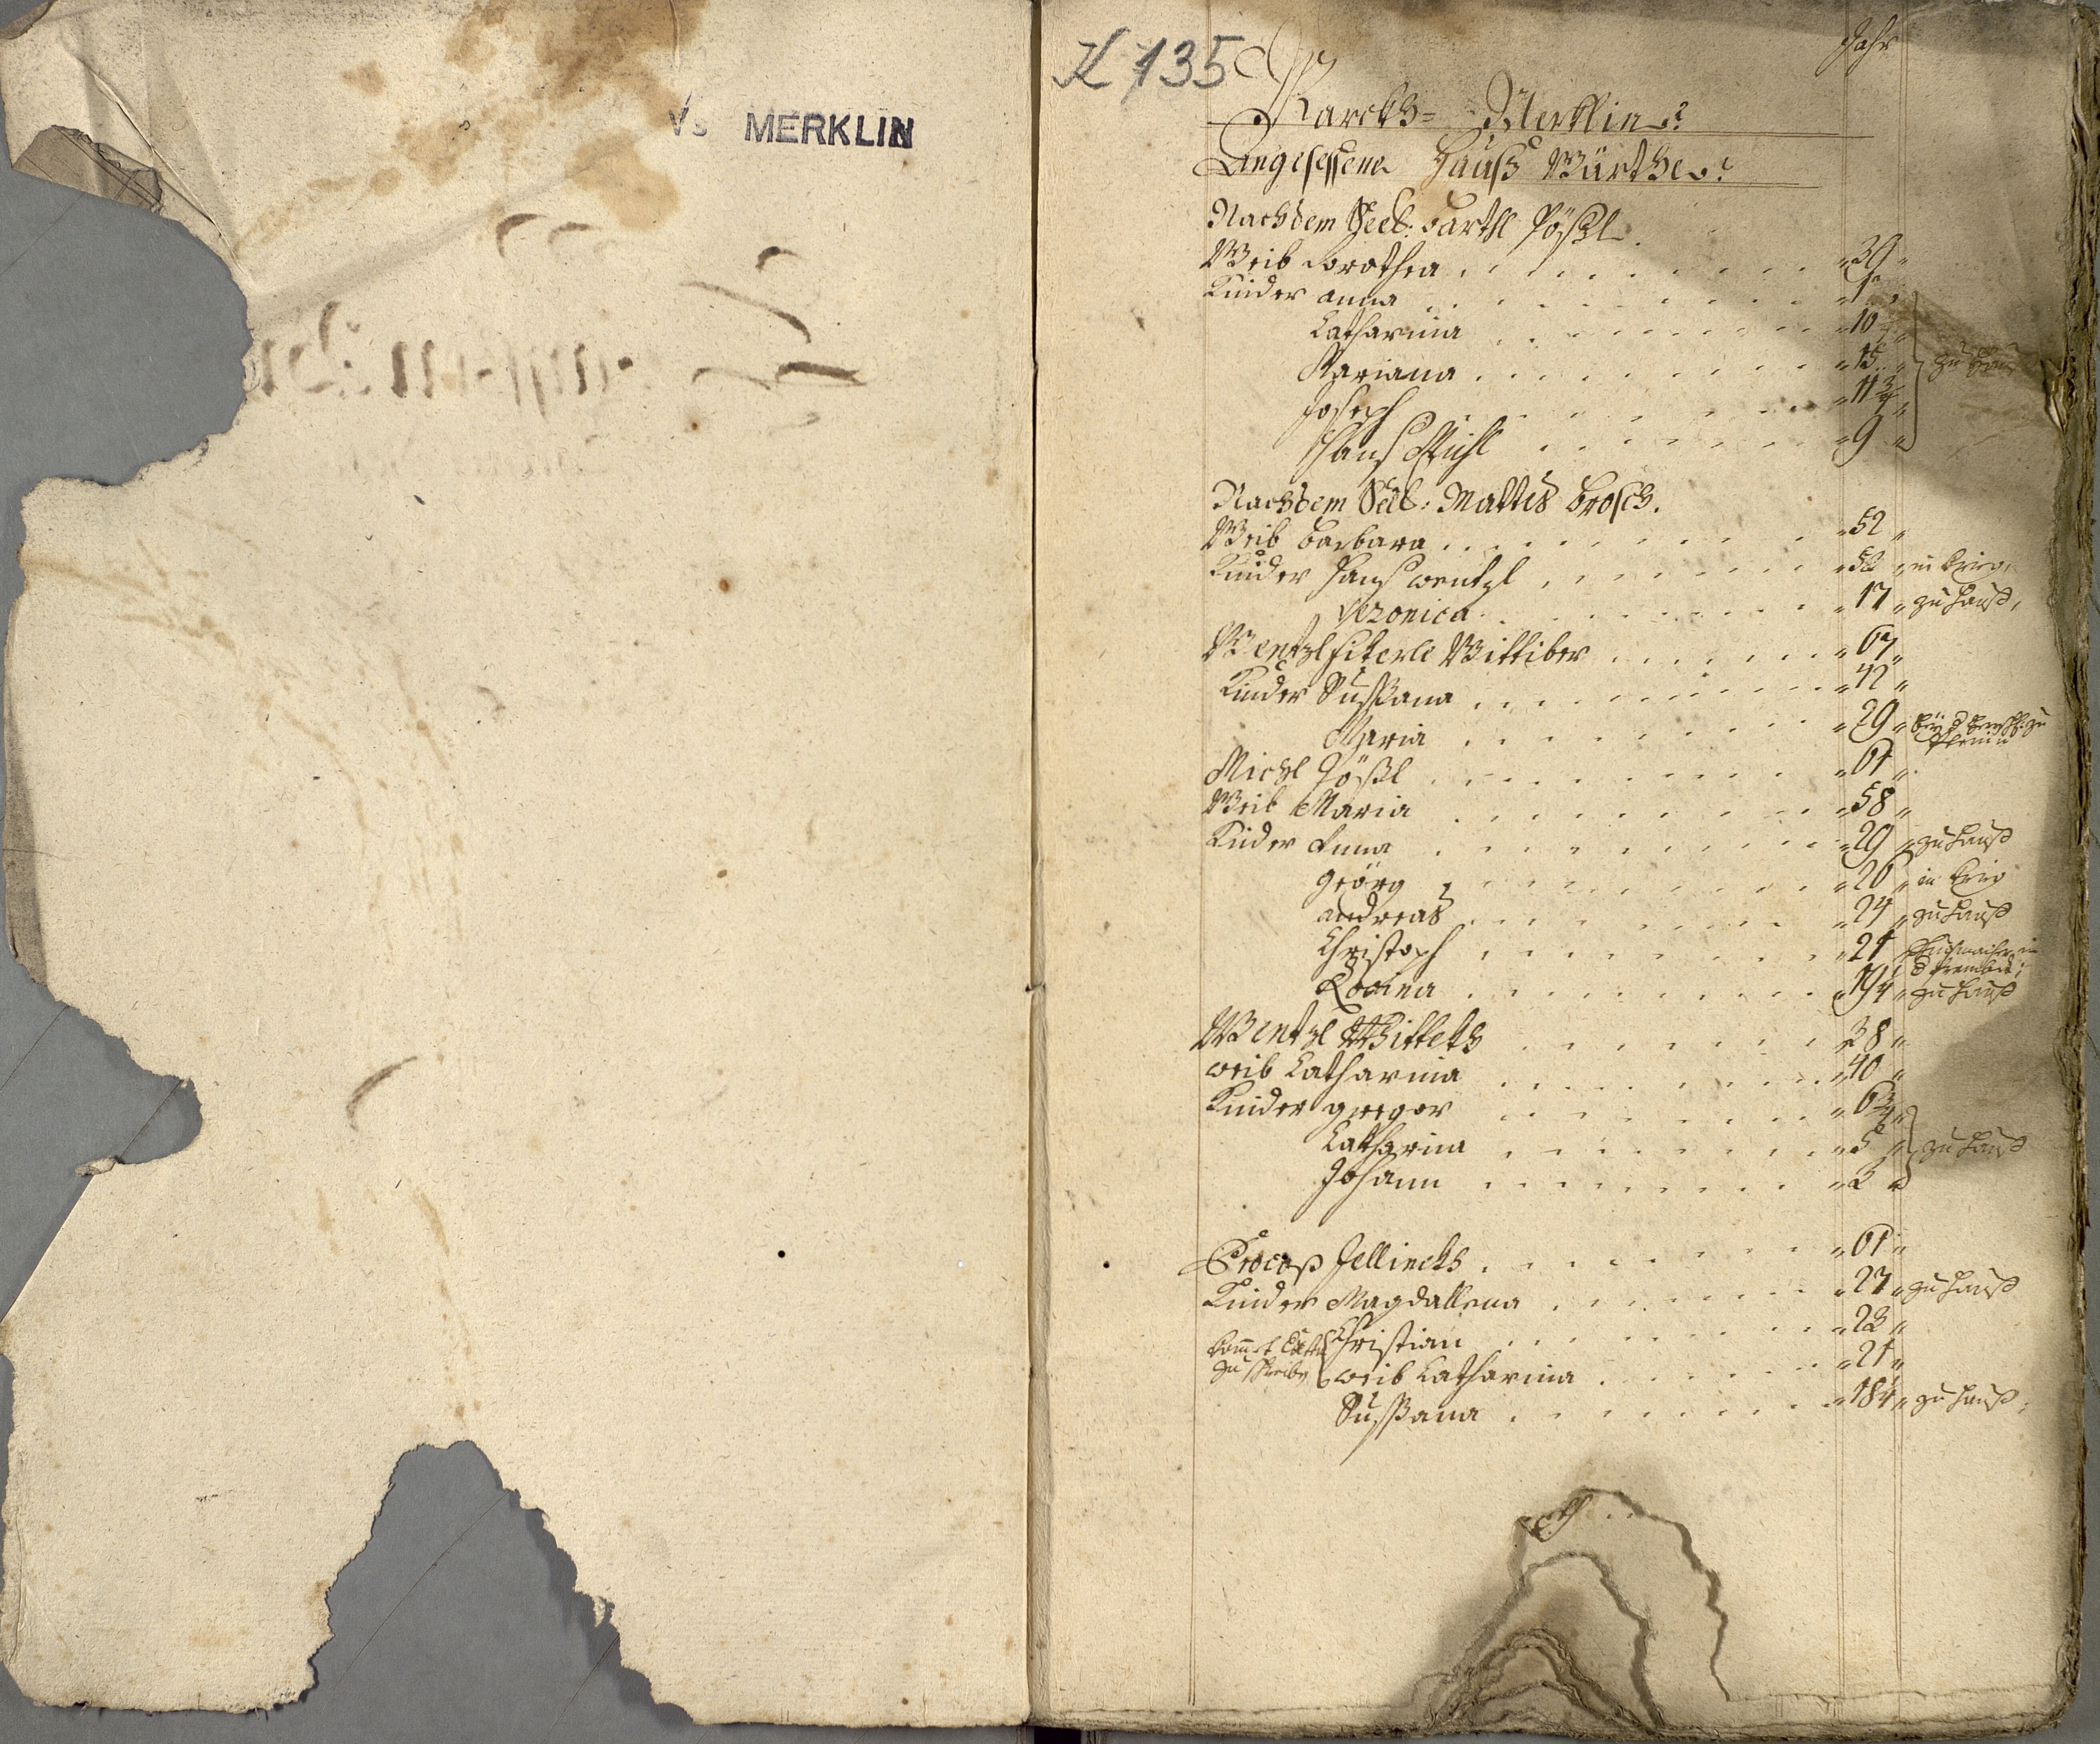 MERKLIN
K 135
Jahr
Marckh= Merklin
Angesessene Hauß Würthe
Nach dem Seel: Barthl Pößl
Weib Dorothea 39
Kinder Anna
Catharina 10
Mariana 15 zu Hauß
Joseph 11 3/4
Hanß Michl 9
Nach dem Seel: Mattes Brosch.
Weib Barbara 52
Kinder Hanß Wentzl in Krieg
Veronica 17 zu Hauß
Wentzl Fiterle Wittiber 67
Kinder Sußana 42
Maria 29
Michl Pößl 61
Weib Maria 58
Kinder Anna 29 zu Hauß
Geörg 26 in Krieg
Andreas 24 zu Hauß
Christoph 21
Rosina zu Hauß
Wentzl Wittekh 38
Weib Catharina 40
Kinder Gregor 6 3/4
Catharina 5 zu Hauß
Johann 2
Procop Jellinekh 61
Kinder Magdallena 27 zu Hauß
Christian 23
Weib Catharina 21
Sußana 18 zu Hauß